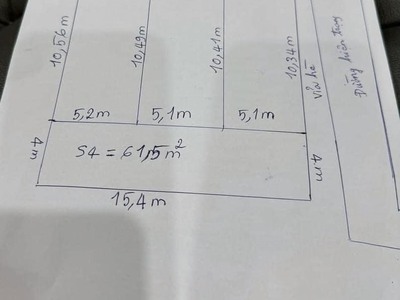 10,56m
10,49m
10,41m
10,34m
Vỉa hè
Đường hiện trạng
5,2m
5,1m
5,1m
4m
S4 = 61,5m²
4m
15,4m